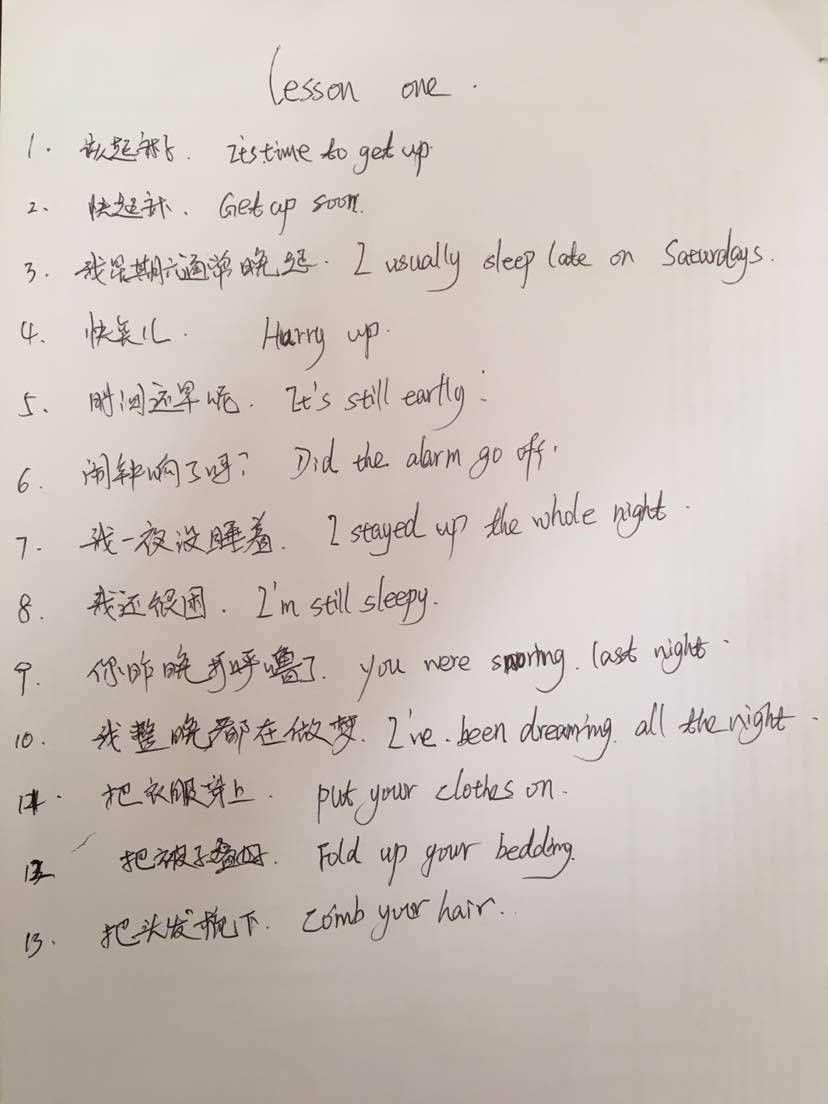 Lesson one.
1. 该起床了. It's time to get up
2. 快起床. Get up soon.
3. 我星期六通常晚起. I usually sleep late on Saturdays.
4. 快点儿. Hurry up.
5. 时间还早呢. It's still eartly.
6. 闹钟响了吗? Did the alarm go off.
7. 我一夜没睡着. I stayed up the whole night.
8. 我还很困. I'm still sleepy.
9. 你昨晚打呼噜了. you were snoring. last night.
10. 我整晚都在做梦. I've been dreaming. all the night.
11. 把衣服穿上. put your clothes on.
12 把被子叠好. Fold up your bedding.
13. 把头发梳下. Comb your hair.